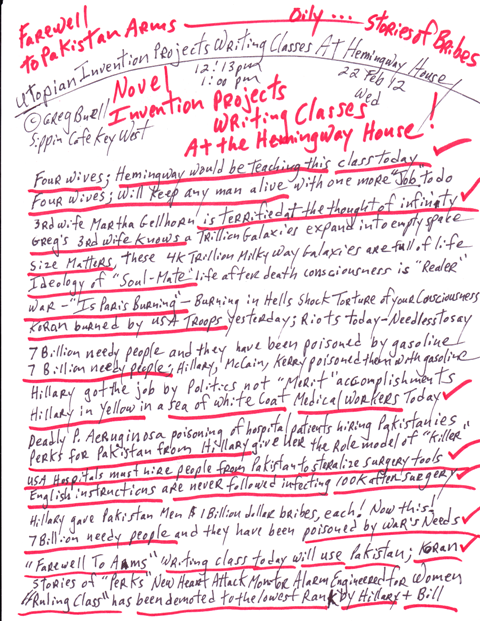 FAREWELL to PAKistan ARMS ———— OilY ... Stories of Bribes
Utopian Invention Projects Writing Classes At Hemingway House
12:13pm
1:00 pm
22 Feb 12
Wed
© Greg Buell
Sippin Cafe Key West
Novel
Invention Projects
Writing Classes
At the Hemingway House!
Four wives; Hemingway would be teaching this class today
Four wives; Will keep any man alive with one more "Job" to do
3rd wife Martha Gellhorn is terrified at the thought of infinity
Greg's 3rd wife knows a Trillion Galaxies expand into empty space
Size Matters, These 4K Trillion Milky Way Galaxies are full of life
Ideology of "Soul-Mate" life after death consciousness is "Realer"
War - "Is Paris Burning" - Burning in Hells Shock Torture of your Consciousness
Koran burned by USA Troops yesterday; Riots today - Needless to say
7 Billion needy people and they have been poisoned by gasoline
7 Billion needy people; Hillary, McCain, Kerry poisoned them with gasoline
Hillary got the job by Politics not "Merit" accomplishments
Hillary in Yellow in a sea of White Coat Medical Workers Today
Deadly P. Aeruginosa poisoning of hospital patients hiring Pakistanies
Perks for Pakistan from Hillary give her the Role model of "Killer"
USA Hospitals must hire people from Pakistan to steralize surgery tools
English instructions are never followed infecting 100K after surgery
Hillary gave Pakistan Men $ 1 Billion dollar bribes, each! Now this!
7 Billion needy people and they have been poisoned by War's Needs
"Farewell To Arms" Writing class today will use Pakistan; Koran
Stories of "Perks" New Heart Attack Monitor Alarm Engineered for Women
"Ruling Class" has been demoted to the lowest Rank by Hillary + Bill